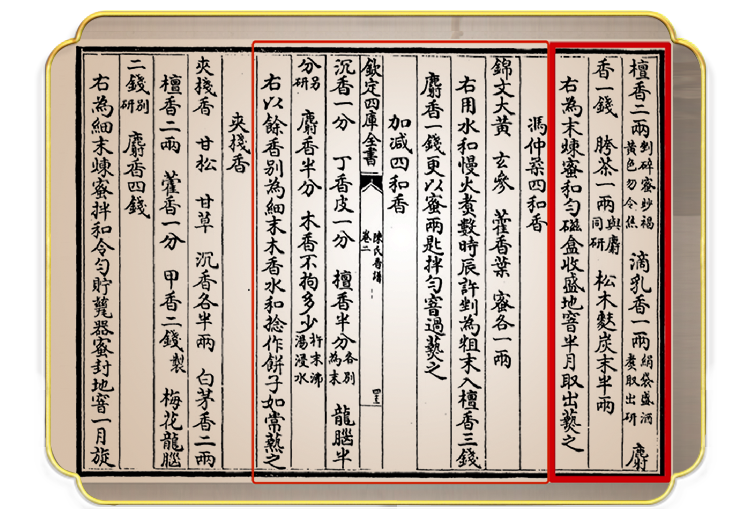 檀香二兩剉碎蜜炒褐黃色勿令焦 滴乳香一兩絹袋盛酒煑取出研 麝
香一錢 臈茶一兩與麝同研 松木麩炭末半兩
右為末煉蜜和勻磁盒收盛地窨半月取出爇之
馮仲柔四和香
錦文大黃 玄參 藿香葉 蜜各一兩
右用水和慢火煑數時辰許剉為粗末入檀香三錢
麝香一錢更以蜜兩匙拌勻窨過爇之
加減四和香
欽定四庫全書 陳氏香譜 卷二
沉香一分 丁香皮一分 檀香半分各別為末 龍腦半
分另研 麝香半分 木香不拘多少杵末沸湯浸水
右以餘香別為細末木香水和捻作餅子如常爇之
夾棧香
夾棧香 甘松 甘草 沉香各半兩 白茅香二兩
檀香二兩 藿香一分 甲香二錢製 梅花龍腦
二錢別研 麝香四錢
右為細末煉蜜拌和令勻貯甆器蜜封地窨一月旋